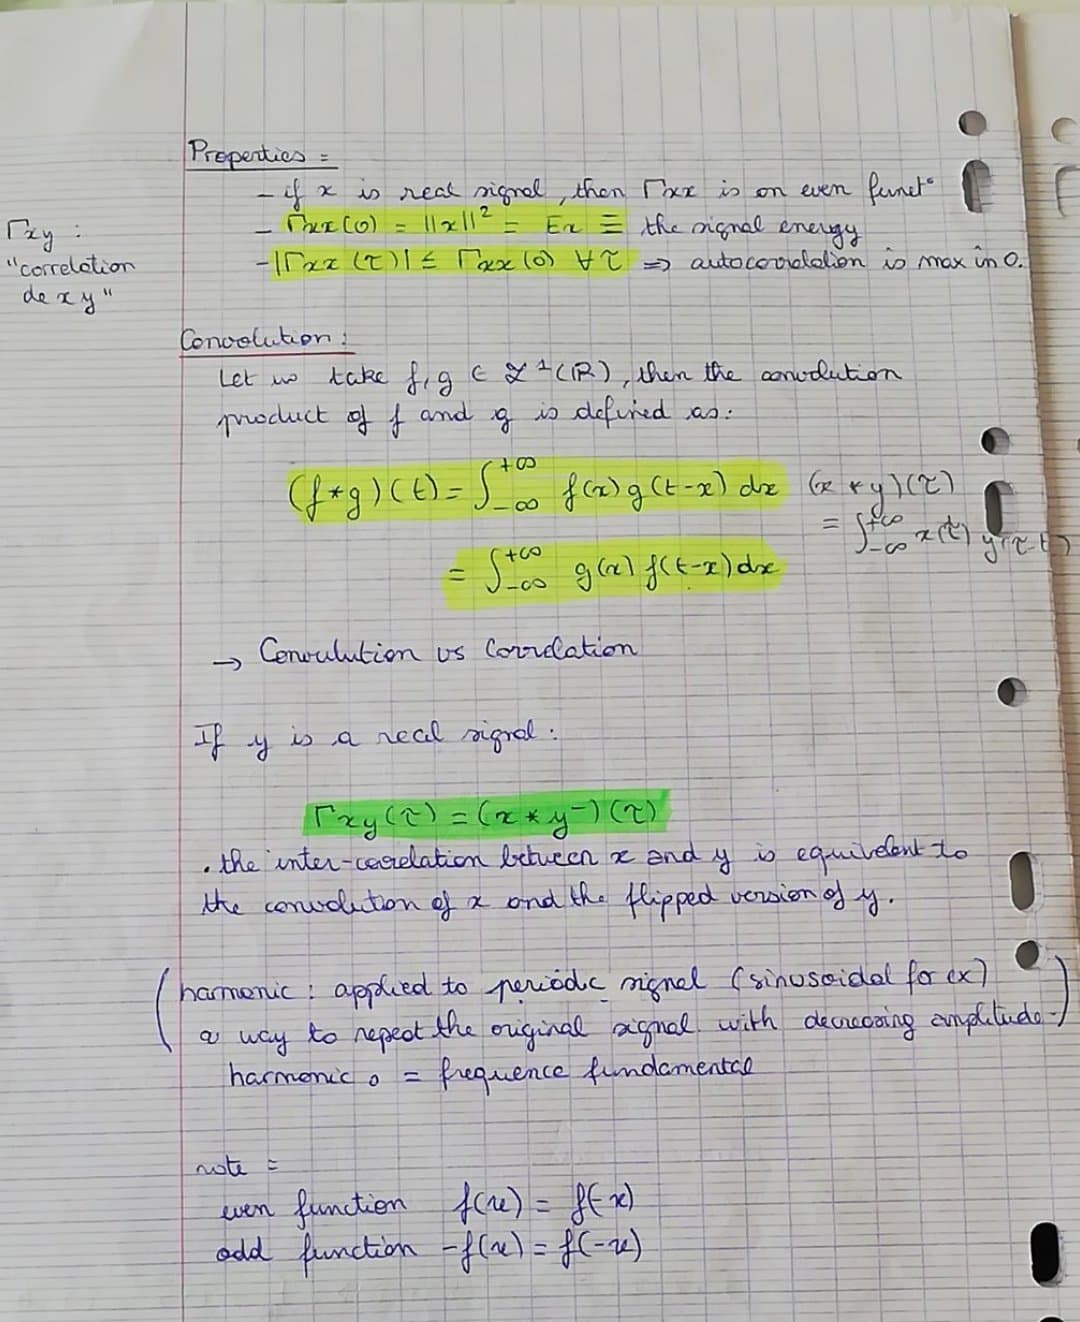 Properties =
- if x is real signal, then Γxx is on even funct°
- Γxx(0) = ||x||² = Ex ≡ the signal energy
- |Γxx(τ)| ≤ Γxx(0) ∀τ ⇒ autocorrelation is max in 0.
Γxy :
"correlation
de xy"
Convolution :
Let us take f,g ∈ ℒ¹(ℝ), then the convolution
product of f and g is defined as:
(f*g)(t) = ∫_{-∞}^{+∞} f(x)g(t-x) dx
= ∫_{-∞}^{+∞} g(x) f(t-x) dx
(x * y)(τ)
= ∫_{-∞}^{+∞} x(t) y(τ-t)
→ Convulution vs Correlation
If y is a real signal :
Γxy(τ) = (x * y⁻)(τ)
. the inter-correlation between x and y is equivalent to
the convolution of x and the flipped version of y.
(harmonic : applied to periodic signal (sinusoidal for ex)
a way to repeat the original signal with decreasing amplitude-)
harmonic 0 = frequence fundamental
note =
even function f(x) = f(-x)
odd function -f(x) = f(-x)